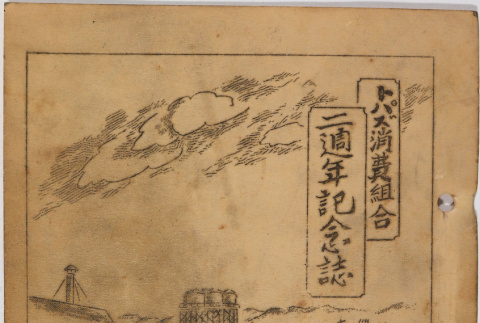 トパズ消費組合
二週年記念誌